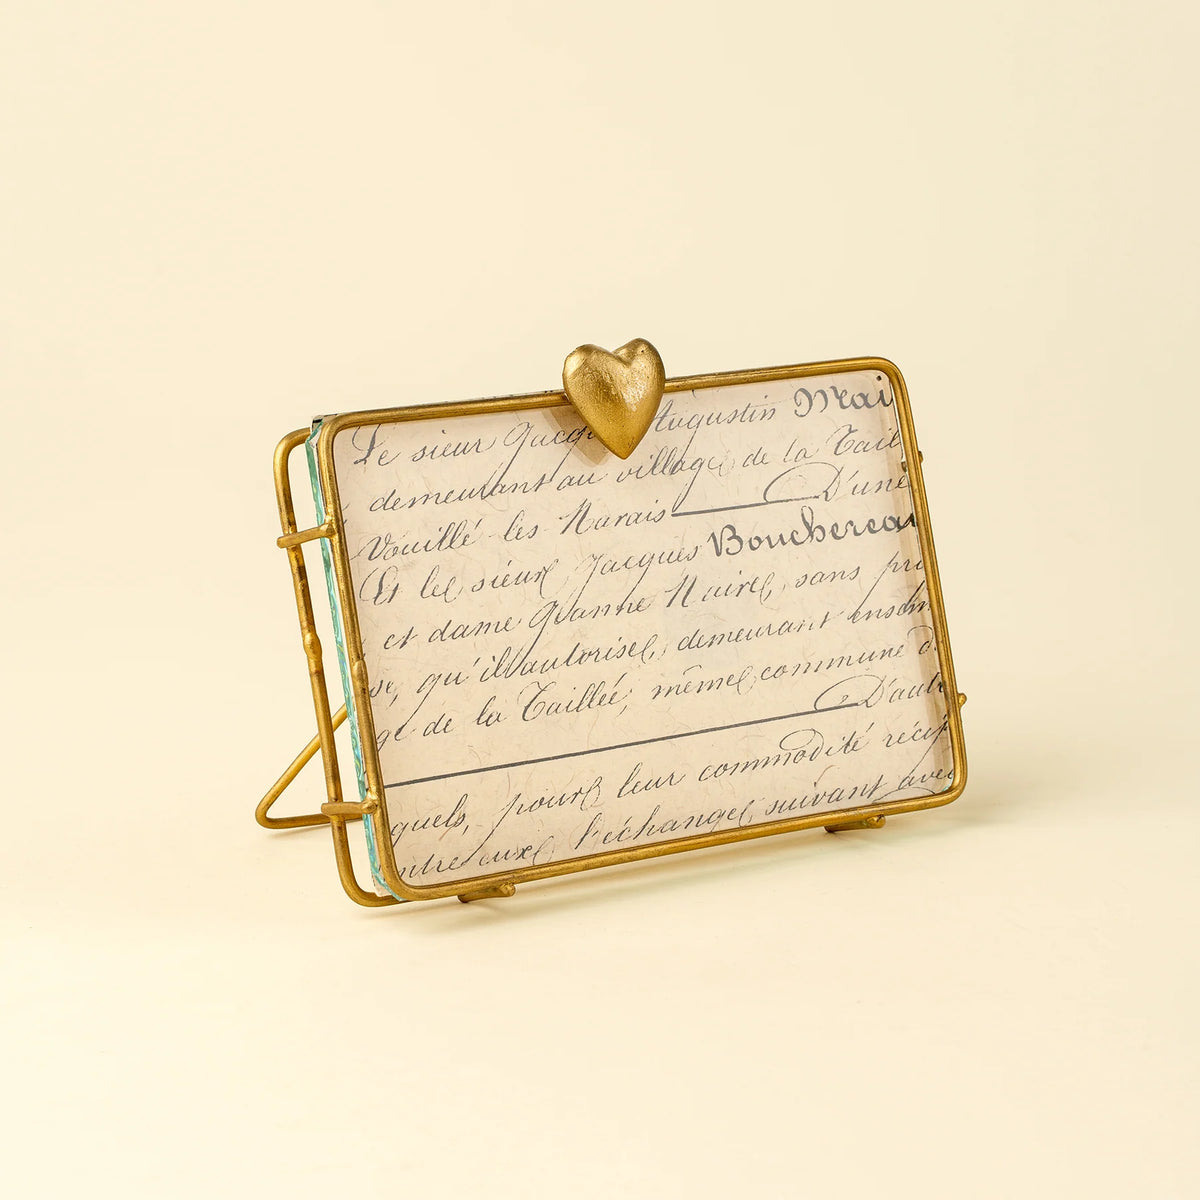 Le sieur Jacq Augustin Mai
demeurant au village de la Tail
Vouillé-les-Marais D'une
Et le sieur Jacques Bouchereau
et dame Jeanne Naire, sans pro
se, qu'il autorise, demeurant ensem
ge de la Taillée, même commune d
D'autr
quels, pour leur commodité récip
ntre eux l'échange suivant avec